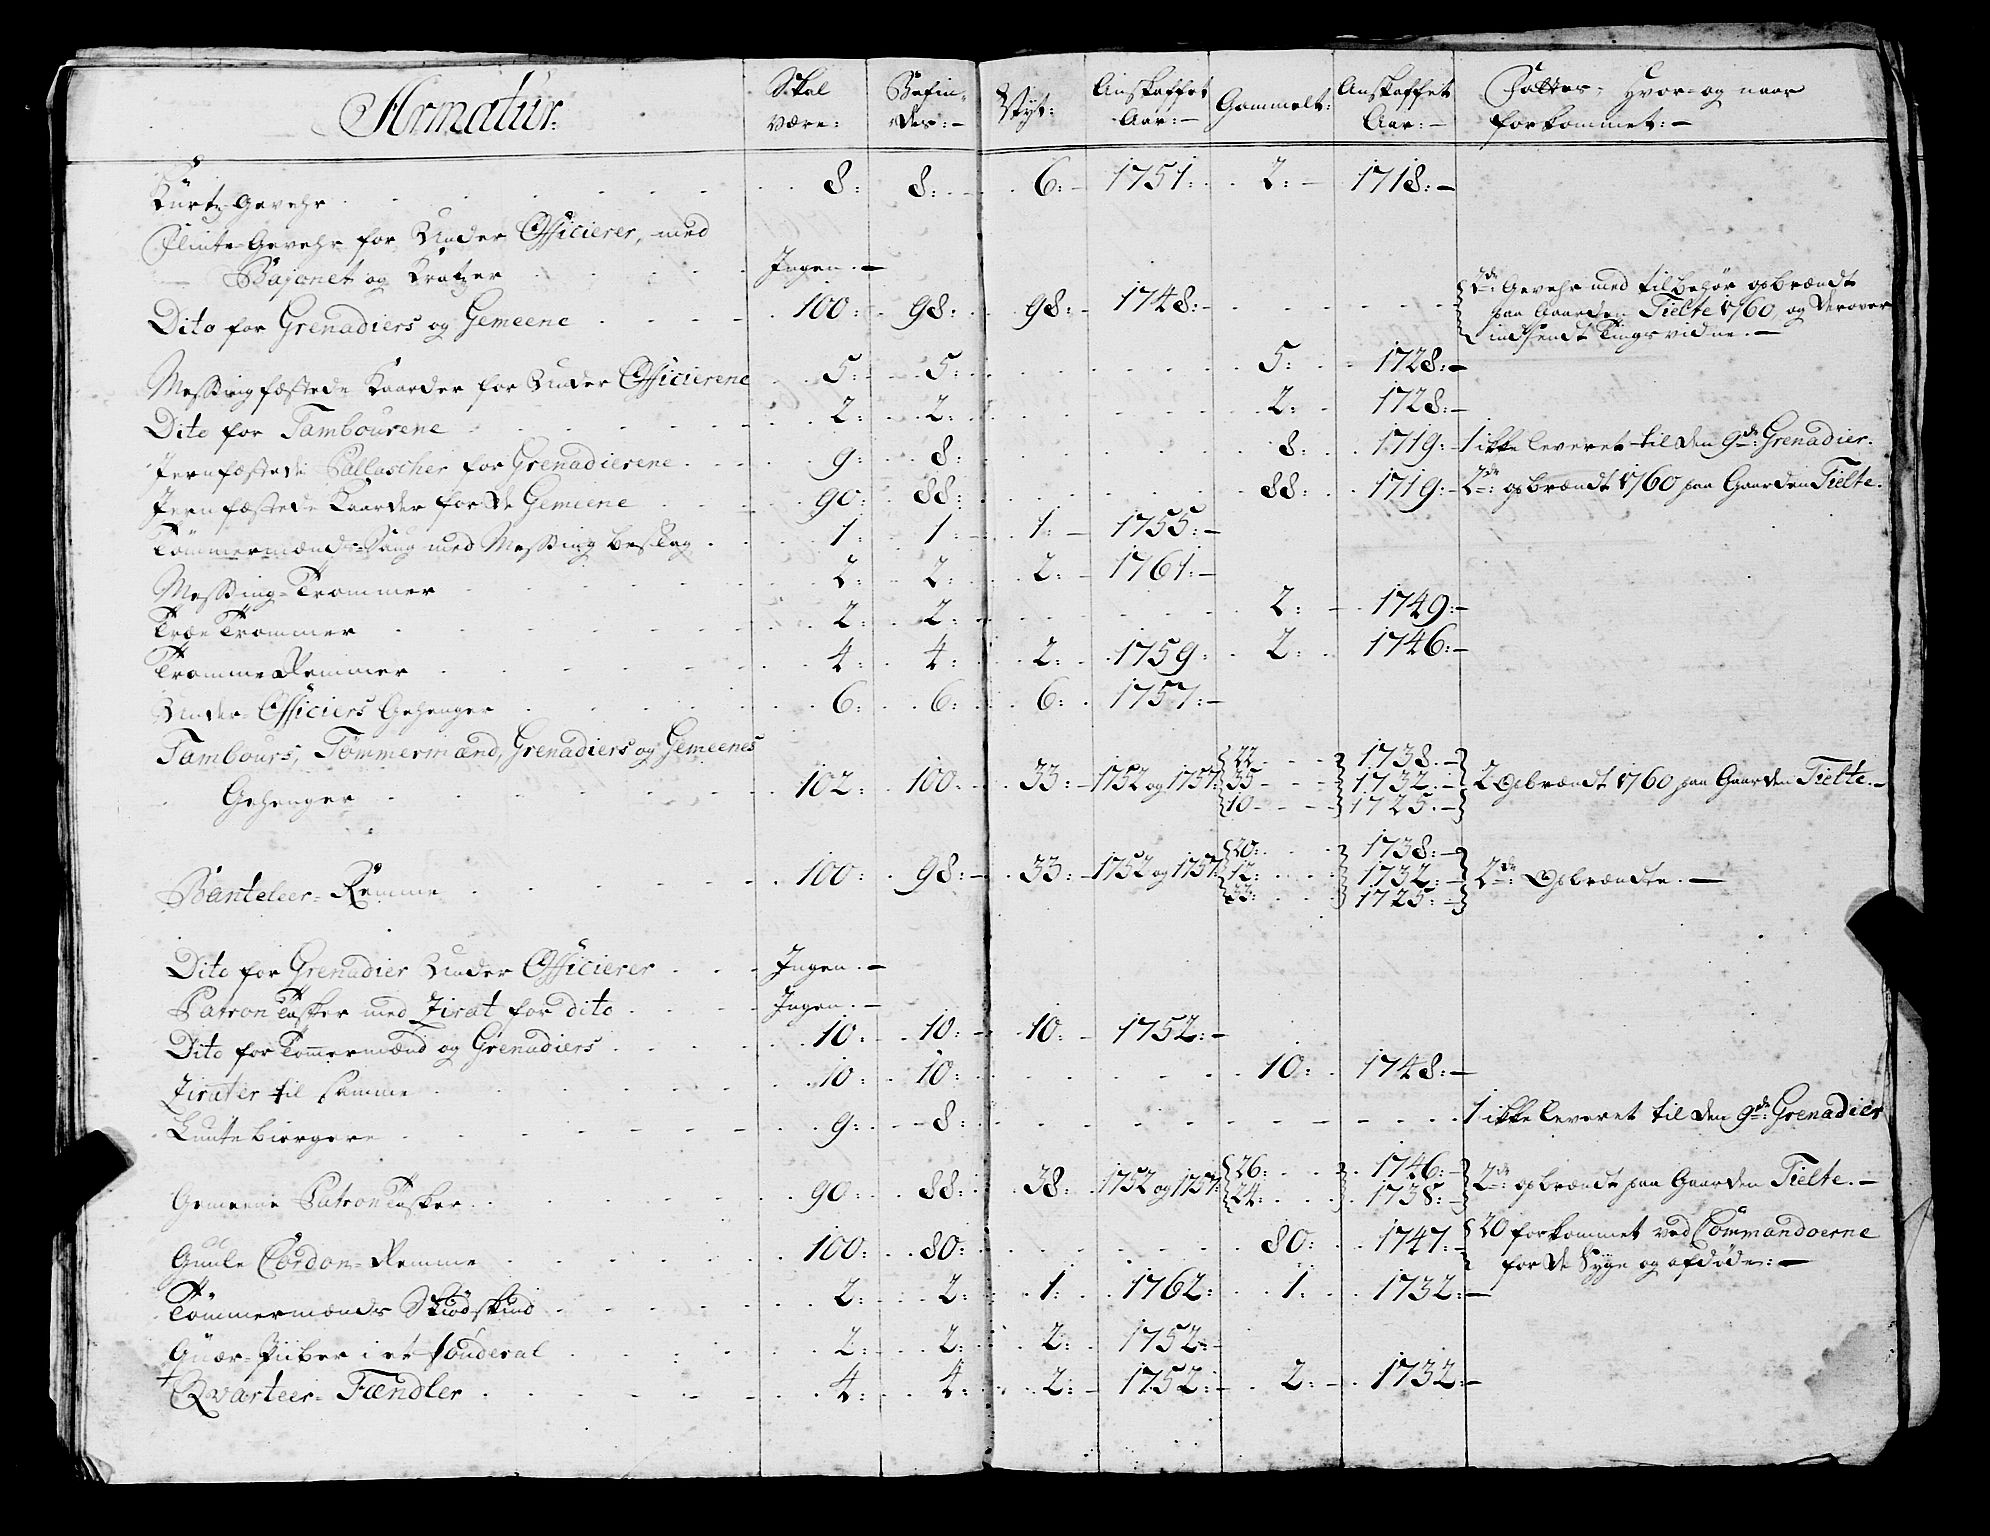 Armatur: Skal være: Befindes:- Nyt: Anskaffet Aar:- Gammelt: Anskaffet Aar:- Fattes, hvor- og naar forkommet:-
Kurtz-Gevehr 8: 8: 6: 1751: 2: 1718:
Flinte-Gevehr for Under Officierer, med
Bajonet og Kratzer Ingen.
Dito for Grenadiers og Gemeene 100: 98: 98: 1748: 2de: Gevehr med tilbehør opbrændt
paa Gaarden Tielte 1760 og derover
indsendt Tingsvidne.
Messingfæstede Kaarder for Under Officierene 5: 5: 5: 1728:
Dito for Tambourene 2: 2: 2: 1728:
Jernfæstede Pallascher for Grenadierene 9: 8: 8: 1719: 1 ikke leveret til den 9de: Grenadier:
Jernfæstede Kaarder for de Gemeene 90: 88: 88: 1719: 2de: opbrændt 1760 paa Gaarden Tielte.
Tömmermænds-Saug med Messing beslag 1: 1: 1: 1755:
Messing-Trommer 2: 2: 2: 1761:
Træe Trommer 2: 2: 2: 1749:
Tromme Remmer 4: 4: 2: 1759: 2: 1746:
Under-Officiers Gehenger 6: 6: 6: 1757:
Tambours, Tömmermænd, Grenadiers og Gemeenes
Gehenger 102: 100: 33: 1752 og 1757: 22 1738. 2 Opbrændt 1760 paa Gaarden Tielte.
35 1732.
10 1725.
Banteleer-Remme 100: 98: 33: 1752 og 1757: 20: 1738: 2de: Opbrændte.
12: 1732:
33: 1725:
Dito for Grenadier Under Officierer Ingen.
Patron Tasker med Zirat for dito Ingen.
Dito for Tömermænd og Grenadiers 10: 10: 10: 1752:
Zirater til samme 10: 10: 10: 1748:
Luntebiergere 9: 8: 1 ikke leveret til den 9de: Grenadier
Gemeene Patron Tasker 90: 88: 38: 1752 og 1757: 26: 1746: 2de: opbrændt paa Gaarden Tielte.
24: 1738:
Guule Cordon-Remme 100: 80: 80: 1747: 20 forkommet ved Commandoerne
for de Syge og afdöde:
Tömmermænds Skiødskind 2: 2: 1: 1762: 1: 1732:
Quær-Piiber i et fouderal 2: 2: 2: 1752:
Qvarteer-Fændler 4: 4: 2: 1752: 2: 1732: